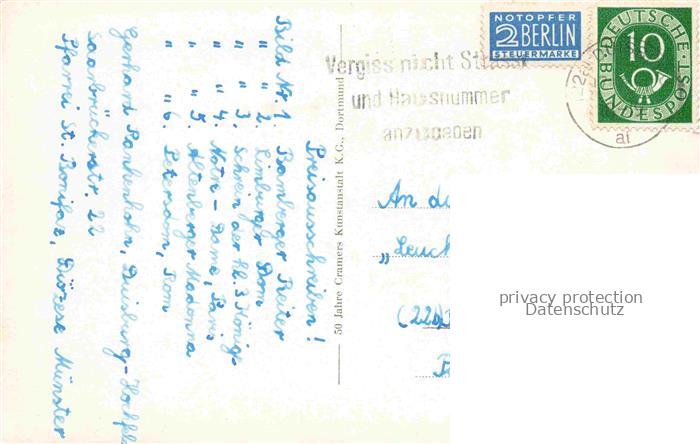 Preisausschreiben!
Bild Nr. 1. Bamberger Reiter
" " 2. Limburger Dom
" " 3. Schrein der hl. 3 Könige
" " 4. Notre-Dame, Paris
" " 5. Altenberger Madonna
" " 6. Petersdom, Rom
Gerhard Duisburg-Hochfeld
Saarbrückerstr. 22
Pfarrei St. Bonifaz, Diözese Münster
50 Jahre Cramers Kunstanstalt K.G., Dortmund
Vergiss nicht Strasse
und Hausnummer
anzugeben
NOTOPFER
2 BERLIN
STEUERMARKE
DEUTSCHE
10
BUNDESPOST
An
"Leuch
(22
privacy protection
Datenschutz